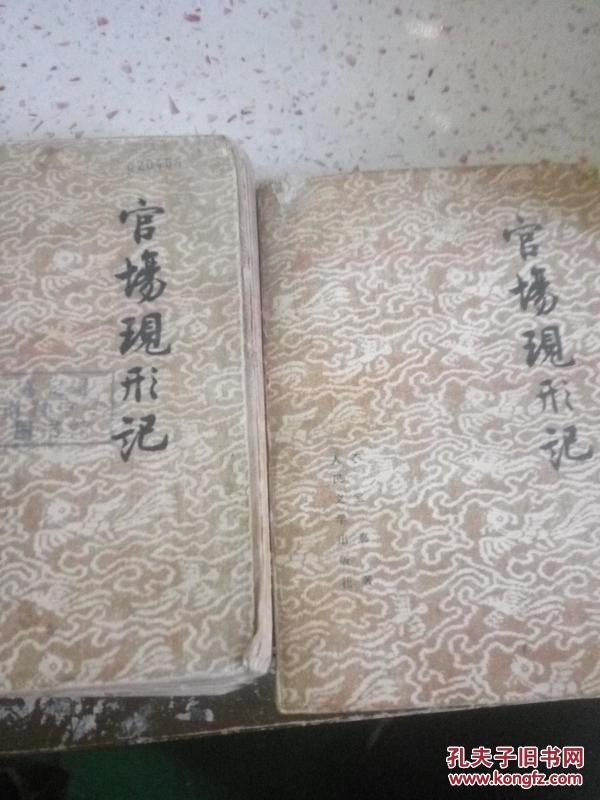 020488
官場現形記
官場現形記
李宝嘉著
人民文学出版社
孔夫子旧书网
www.kongfz.com